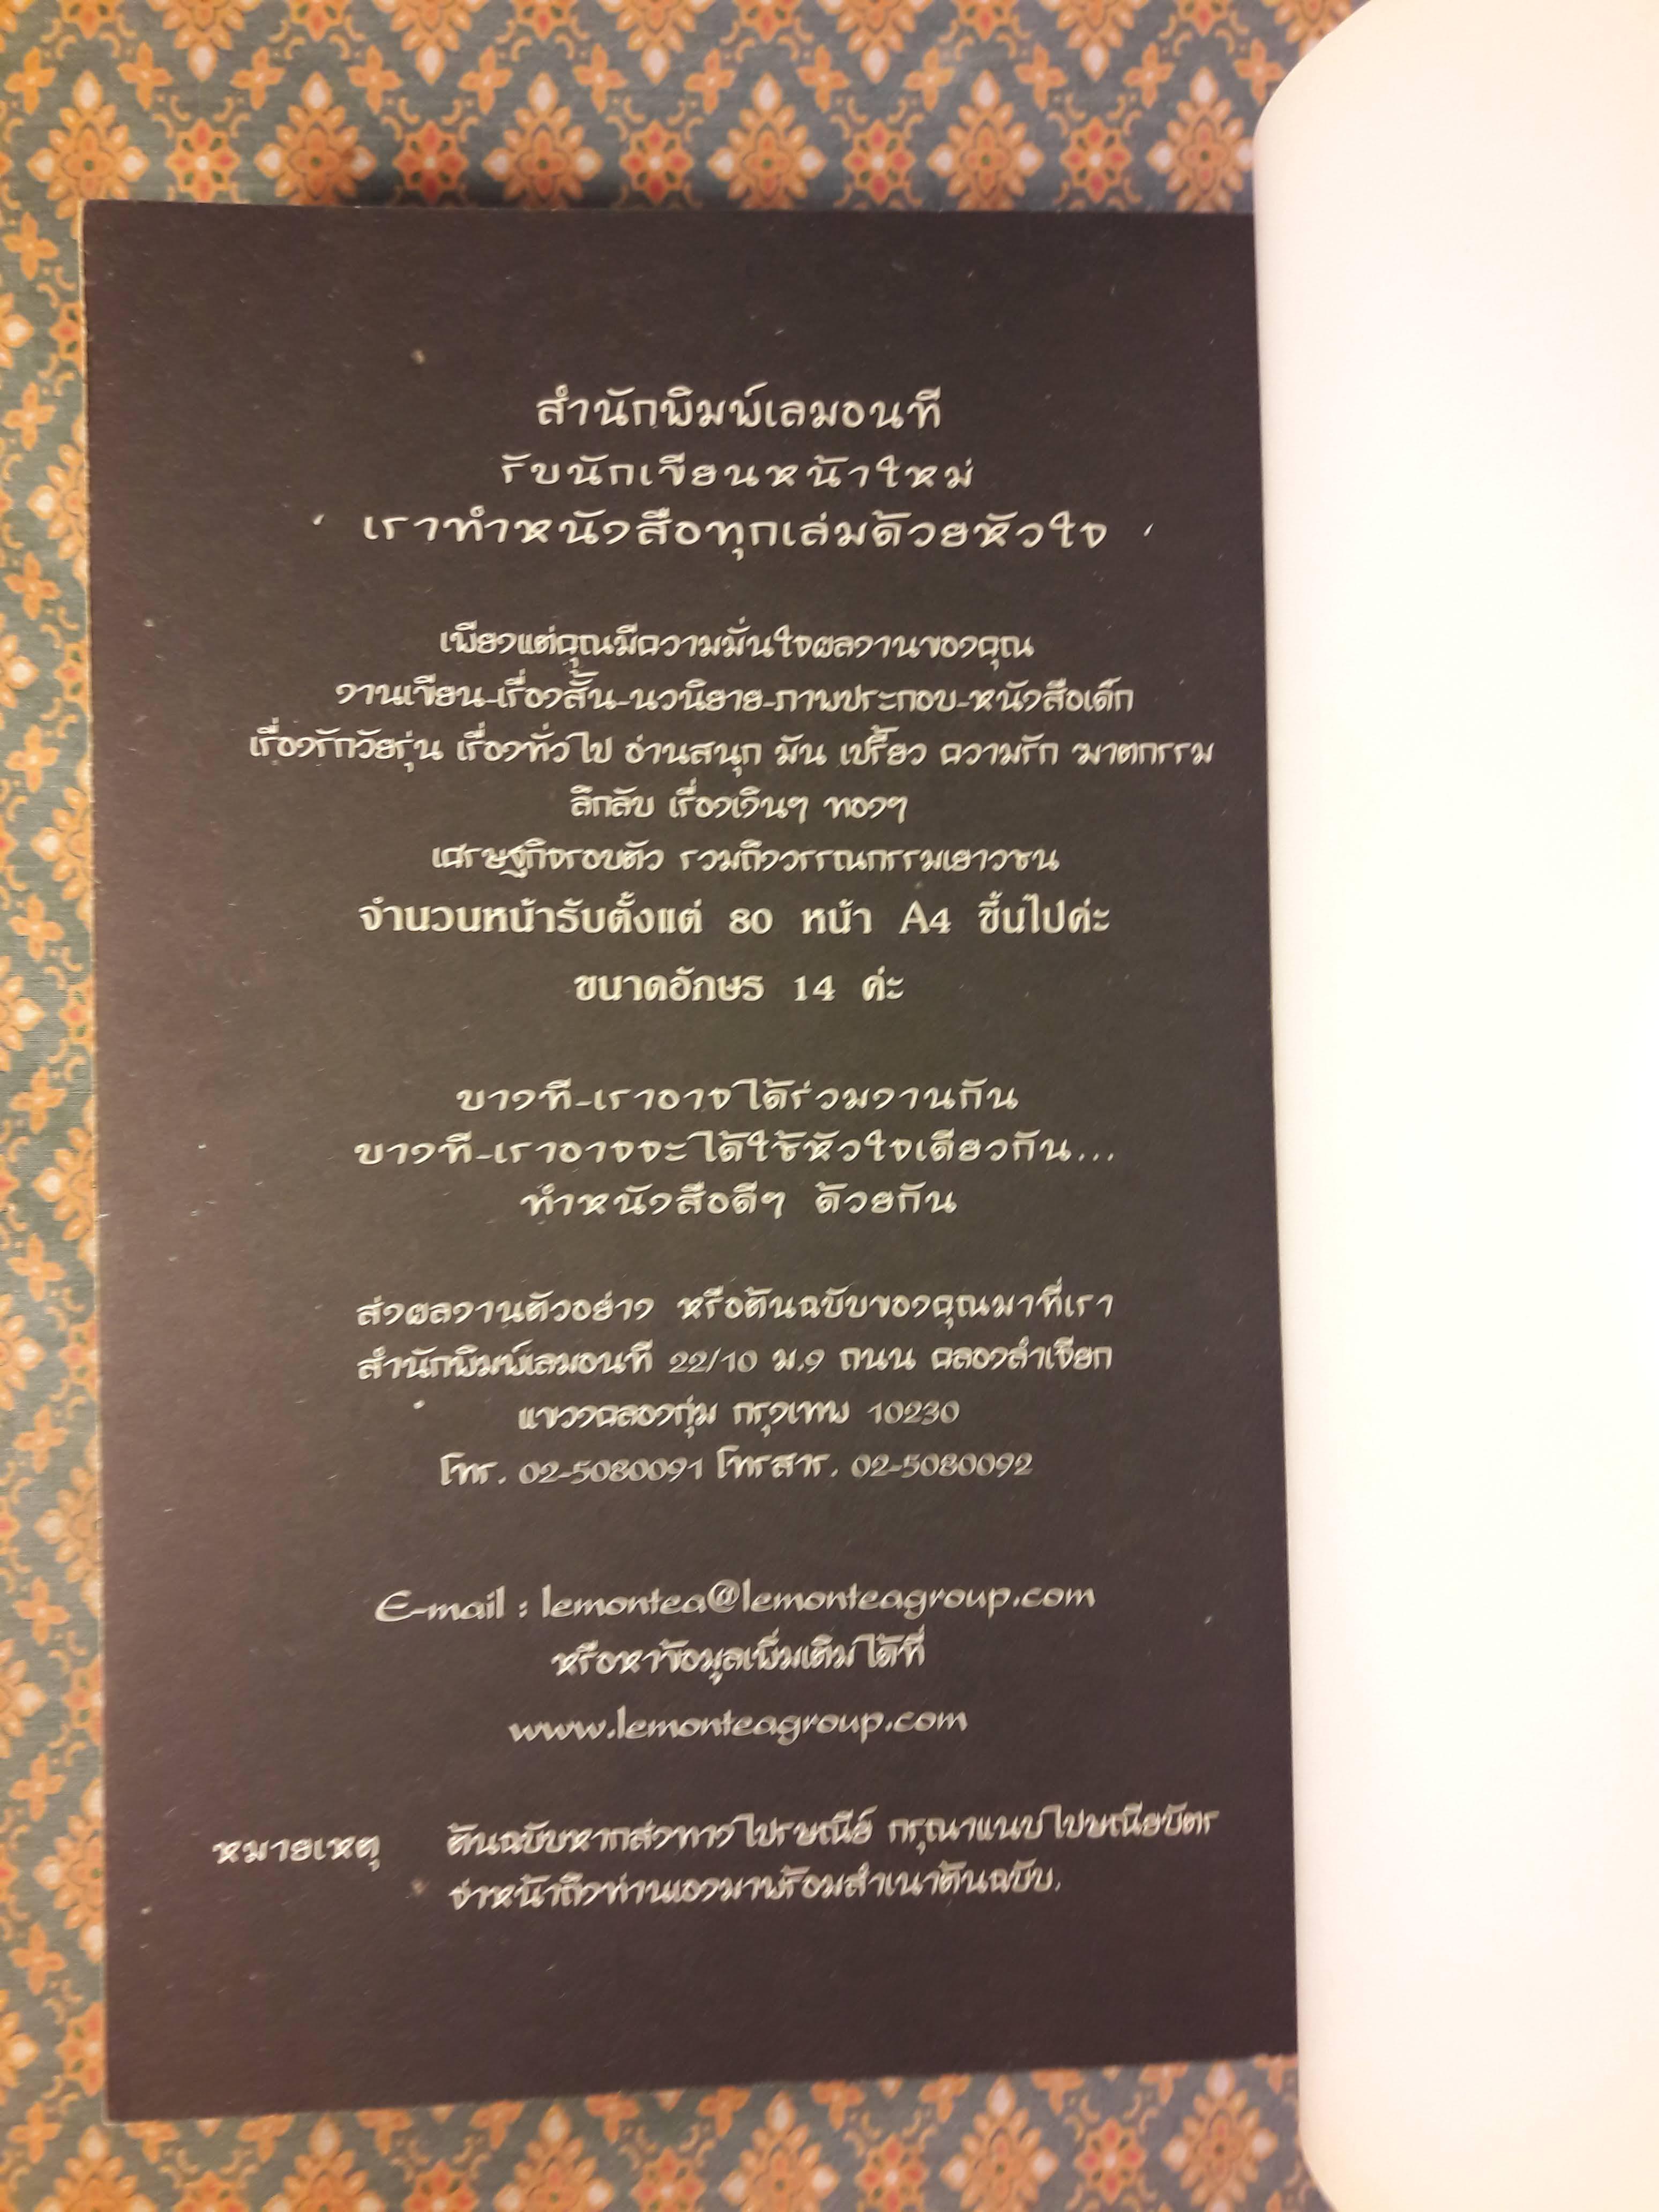 สำนักพิมพ์เลมอนที
รับนักเขียนหน้าใหม่
' เราทำหนังสือทุกเล่มด้วยหัวใจ '
เพียงแต่คุณมีความมั่นใจผลงานของคุณ
งานเขียน-เรื่องสั้น-นวนิยาย-ภาพประกอบ-หนังสือเด็ก
เรื่องรักวัยรุ่น เรื่องทั่วไป อ่านสนุก มัน เปรี้ยว ความรัก ฆาตกรรม
ลึกลับ เรื่องเงินๆ ทองๆ
เศรษฐกิจรอบตัว รวมถึงวรรณกรรมเยาวชน
จำนวนหน้ารับตั้งแต่ 80 หน้า A4 ขึ้นไปค่ะ
ขนาดอักษร 14 ค่ะ
บางที-เราอาจได้ร่วมงานกัน
บางที-เราอาจจะได้ใช้หัวใจเดียวกัน...
ทำหนังสือดีๆ ด้วยกัน
ส่งผลงานตัวอย่าง หรือต้นฉบับของคุณมาที่เรา
สำนักพิมพ์เลมอนที 22/10 ม.9 ถนน คลองลำเจียก
แขวงคลองกุ่ม กรุงเทพ 10230
โทร. 02-5080091 โทรสาร. 02-5080092
E-mail : lemontea@lemonteagroup.com
หรือหาข้อมูลเพิ่มเติมได้ที่
www.lemonteagroup.com
หมายเหตุ ต้นฉบับหากส่งทางไปรษณีย์ กรุณาแนบไปษณียบัตร
จ่าหน้าถึงท่านเองมาพร้อมสำเนาต้นฉบับ.